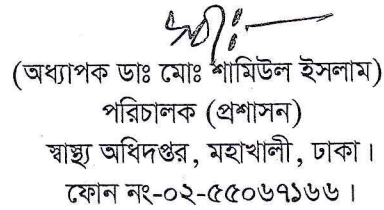 স্বাঃ
(অধ্যাপক ডাঃ মোঃ শামিউল ইসলাম)
পরিচালক (প্রশাসন)
স্বাস্থ্য অধিদপ্তর, মহাখালী, ঢাকা।
ফোন নং-০২-৫৫০৬৭১৬৬।